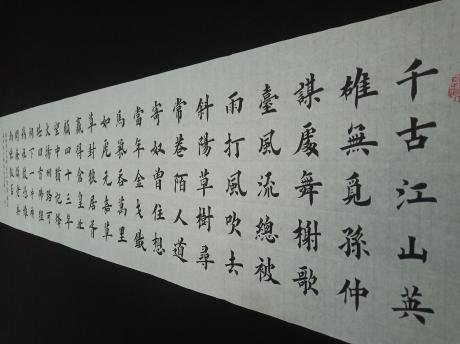 千古江山英
雄無覓孫仲
謀處舞榭歌
臺風流總被
雨打風吹去
斜陽草樹尋
常巷陌人道
寄奴曾住想
當年金戈鐵
馬氣吞萬里
如虎元嘉草
草封狼居胥
贏得倉皇北
顧四十三年
望中猶記烽
火揚州路可
堪回首佛狸
祠下一片神
鴉社鼓憑誰